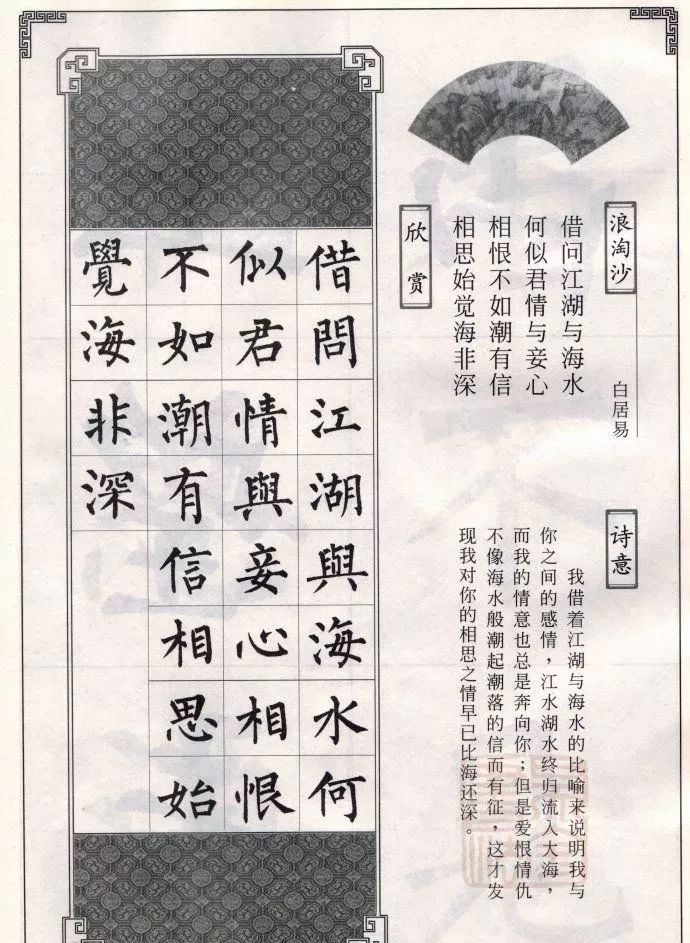 浪淘沙
白居易
借问江湖与海水
何似君情与妾心
相恨不如潮有信
相思始觉海非深
欣赏
诗意
我借着江湖与海水的比喻来说明我与
你之间的感情，江水湖水终归流入大海，
而我的情意也总是奔向你；但是爱恨情仇
不像海水般潮起潮落的信而有征，这才发
现我对你的相思之情早已比海还深。
借問江湖與海水何
似君情與妾心相恨
不如潮有信相思始
覺海非深